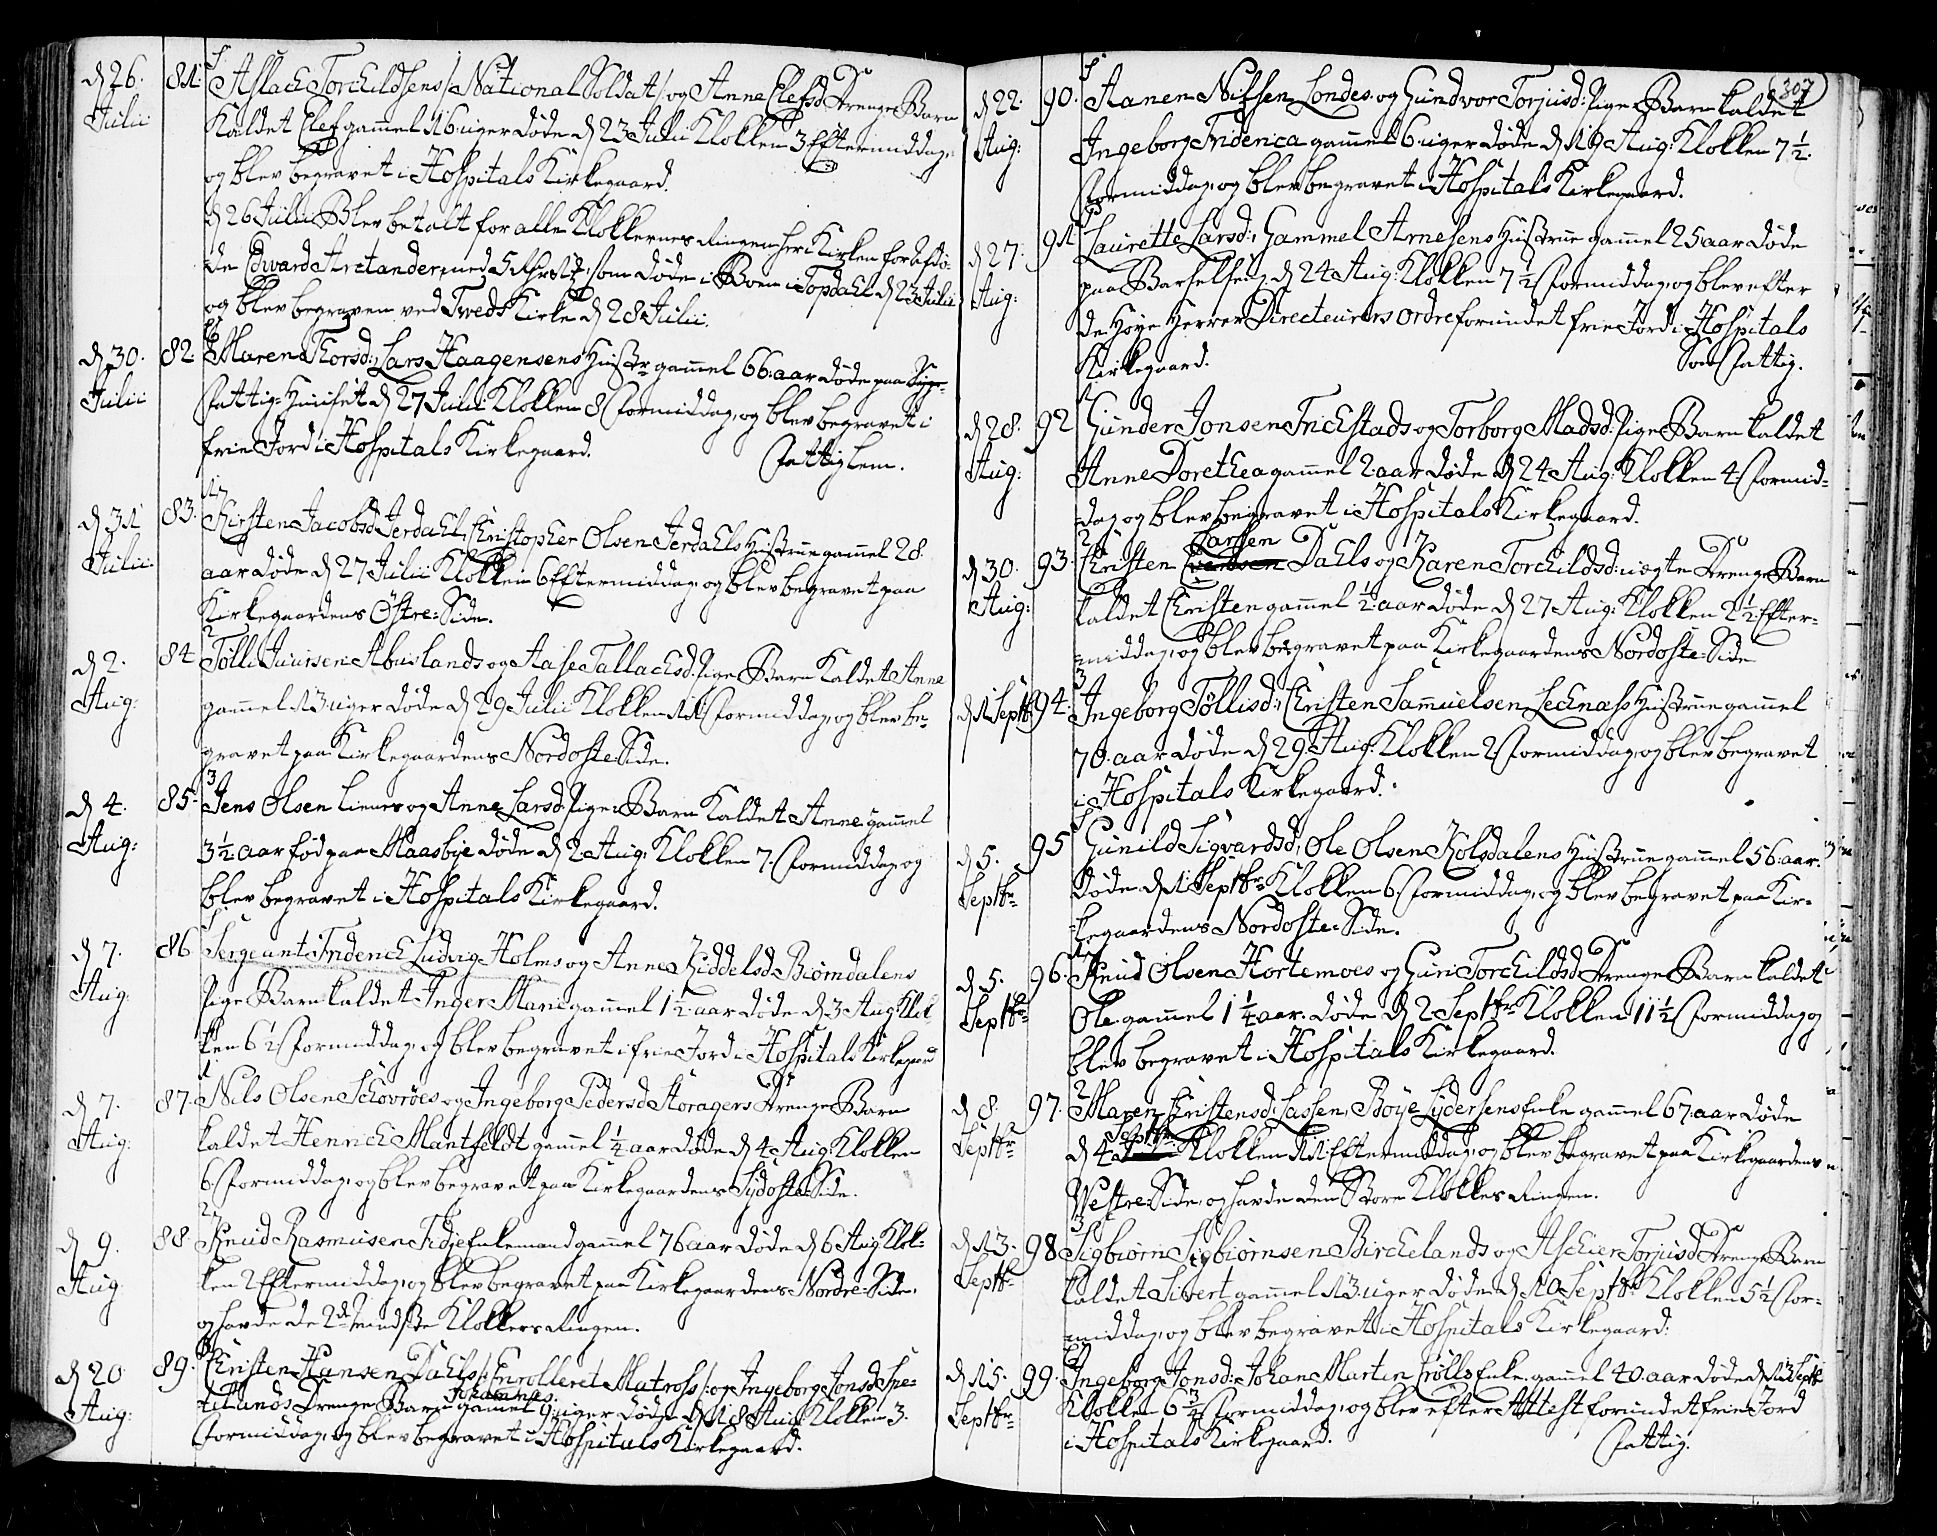 d 26. Julii 81. Aslach Torchildsens /: National Soldat :/ og Anne Elefsd Drenge Barn
Kaldet Elef gammel 16 uger døde d 23 Julii Klokken 3 Eftermiddag,
og blev begravet i Hospitals Kirkegaard.
d 26 Julii Blev betalt for alle Klokkernes Ringen her i Kirken for afdø-
de Edvard Arctander, som døde i Boen i Topdahl d 23 Julii
og blev begraven ved Tveds Kirke d 28 Julii.
d 30. Julii 82. Maren Thorsd: Lars Haagensens Hustr gammel 66: aar døde paa Syge-
Fattig-Huuset d 27 Julii Klokken 8 Formiddag, og blev begravet i
frie Jord i Hospitals Kirkegaard. Fattig Lem.
d 31 Julii 83. Kirsten Jacobsd Jerdahl, Christopher Olsen Jerdahls Hustrue gammel 28
aar døde d 27 Julii Klokken 6 Eftermiddag, og blev begravet paa
Kirkegaardens Østre-Side.
d 2. Aug: 84. Tølli Abuslands og Aase Tallachsd. Pige Barn Kaldet Anne
gammel 13 uger døde d 29 Julii Klokken 11 Formiddag, og blev be-
gravet paa Kirkegaardens Nordoste Side.
d 4. Aug: 85. Jens Olsen Lienes og Anne Larsd: Pige Barn Kaldet Anne gammel
3 1/2 aar fød paa Maasbye døde d 2 Aug: Klokken 7. Formiddag, og
blev begravet i Hospitals Kirkegaard.
d 7. Aug: 86. Sergeant Friderich Ludvig Holms og Anne Kiddelsd Biørndalens
Pige Barn kaldet Inger Marie gammel 1 1/2 aar døde d 3 Aug: Klok-
ken 6 1/2 Formiddag, og blev begravet i frie Jord i Hospitals Kirkegaard
d 7. Aug: 87. Nils Olsen Schovrøes og Ingeborg Pedersd Storagers Drenge Barn
kaldet Henrich Mantfeldt gammel 1/4 aar døde d 4 Aug: Klokken
6 Formiddag, og blev begravet paa Kirkegaardens Sydoste Side.
d 9. Aug. 88. Knud Rasmusen Fidje Enkemand gammel 76 aar døde d 6 Aug Klok-
ken 2 Eftermiddag, og blev begravet paa Kirkegaardens Nordre-Side,
og havde de 2de mindste Klokkers Ringen.
d 20 Aug: 89. Christen Hansen Dahls /: Enrolleret Matross :/ og Ingeborg Jonsd Spe-
telunds Drenge Barn Johannes gamel 9 uger døde d 18 Aug Klokken 3.
Formiddag, og blev begravet i Hospitals Kirkegaard.
307
d 22. Aug: 90. Aanen Nilsen Londes og Gundvor Torjusd: Pige Barn kaldet
Ingeborg Fridenica gammel 6 uger døde d 19 Aug: Klokken 7 1/2.
Formiddag, og blev begravet i Hospitals Kirkegaard.
d 27. Aug: 91. Laurette Larsd:, Gammel Arnesens Hustrue gammel 25 aar døde
paa Barselseng d 24 Aug: Klokken 7 1/2 Formiddag, og blev efter
de Høye Herrer Directeurers Ordre forundet frie Jord i Hospitals
Kirkegaard. Som Fattig.
d 28. Aug: 92. Gunder Jonsen Frichstads og Torborg Madsd: Pige Barn kaldet
Anne Dorethea gammel 2 aar døde d 24 Aug: Klokken 4 Formid-
dag og blev begravet i Hospitals Kirkegaard.
Larsen
d 30. Aug: 93. Christen Dahls og Karen Torchildsd: uægte Drenge Barn
kaldet Christen gammel 1/2 aar døde d 27 Aug: Klokken 2 1/2 Efter-
middag, og blev begravet paa Kirkegaardens Nordoste-Side
d 1 Septbr 94. Ingeborg Tøllisd:, Christen Samuelsen Lechnæss Hustrue gammel
70. aar døde d 29. Aug: Klokken 2 Formiddag, og blev begravet
i Hospitals Kirkegaard.
d 5. Septbr 95. Gunild Sigvardsd, Ole Olsen Kolsdalens Hustrue gammel 56. aar.
døde d 1 Septbr Klokken 6 Formiddag, og blev begravet paa Kir-
kegaardens Nordoste-Side.
d 5. Septbr 96. Knud Olsen Hortemoes og Guri Torchildsd Drenge Barn kaldet
Ole gammel 1 1/4 aar. døde d 2 Septbr Klokken 11 1/2 Formiddag, og
blev begravet i Hospitals Kirkegaard.
d 8. Septbr 97. Maren Christensd: Lassen, Boye Lydersens Enke gammel 67. aar døde
d 4 Septbr Klokken 11 Eftermiddag, og blev begravet paa Kirkegaardens
Vestre-Side, og havde den Store Klokkes Ringen.
d 13. Septbr 98. Sigbiørn Sigbiørnsen Birchelands og Aschier Torjusd Drenge Barn
kaldet Sivert gammel 13. uger døde d 10 Septbr Klokken 5 1/2 For-
middag, og blev begravet i Hospitals Kirkegaard.
d 15. Septbr 99. Ingeborg Jonsd: Johan Martin Trølls Enke gammel 40. aar døde d 13 Septbr
Klokken 6 3/4 Formiddag, og blev efter Attest forundet frie Jord
i Hospitals Kirkegaard. Fattig.